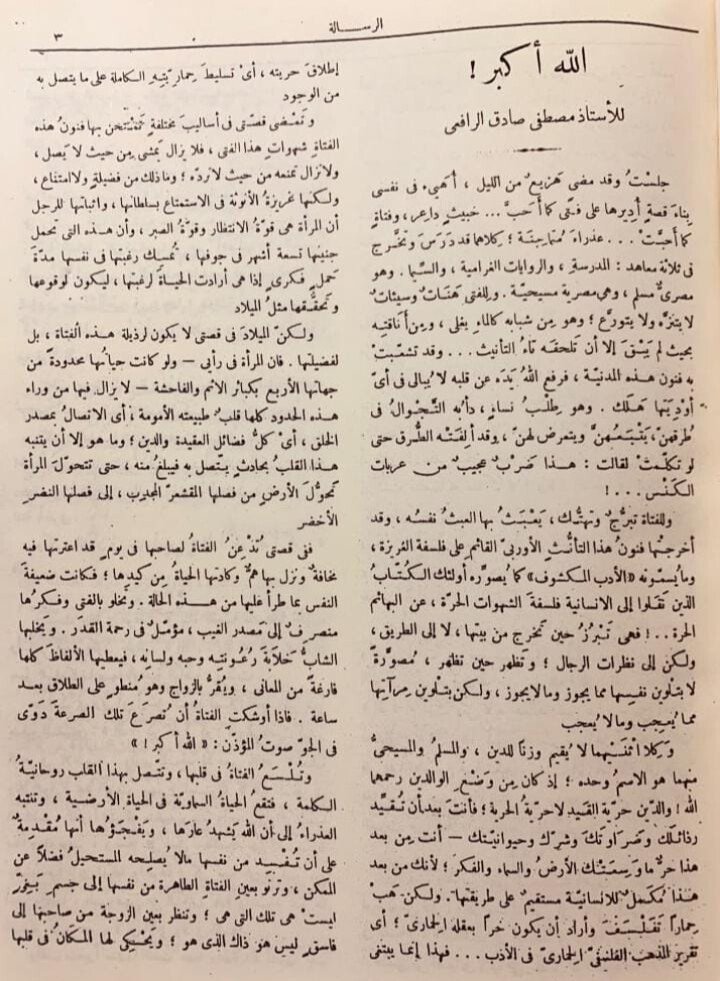 الرسالة
٣
الله أكبر !
للأستاذ مصطفى صادق الرافعى
جلستُ وقد مضى هَزيعٌ من الليل ، أهيء فى نفسى
بناءَ قصةٍ أُديرها على فتًى كما أحبَّ ... خبيثٍ داعِر ، وفتاةٍ
كما أحبَّتْ ... عذراءَ مُتماجِنة ؛ كلاهما قد دَرَسَ وتخرَّج
فى ثلاثة معاهد : المدرسة ، والروايات الغرامية ، والسيما . وهو
مصرىٌّ مسلم ، وهى مصرية مسيحيّة . وللفتى هَنَاتٌ وسيئاتٌ
لا يتنزَّه ولا يتورَّع ؛ وهو من شبابه كالماء يغلى ، ومن أناقته
بحيث لم يَبْقَ إلا أن تلحقه تاءُ التأنيث ... وقد تشعّبتْ
به فنون هذه المدنية ، فرفع اللهُ يَدَه عن قلبه لا يُبالى فى أىِّ
أوديتها هَلَك . وهو طِلْبُ نساءٍ ، دأبه التَّجْوالُ فى
طرقهنّ ، يَتْبَعُهنَّ ويتعرض لهنّ ، وقد ألِفَتْه الطُّرق حتى
لو تكلمتْ لقالت : هذا ضَربٌ عجيبٌ من عربات
الكَنْس ... !
وللفتاة تبرُّجٌ وتهتُّك ، يَعْبَثُ بها العبثُ نفسُه ، وقد
أخرجتْها فنونُ هذا التأنُّث الأوربىّ القائم على فلسفة الغريزة ،
وما يسمّونه «الأدب المكشوف» كما يُصوِّره أولئك الكُتّابُ
الذين نَقَلوا إلى الانسانية فلسفةَ الشهوات الحرّة ، عن البهائم
الحرة .. ! فهى تَبْرُزُ حين تخرج من بيتها ، لا إلى الطريق ،
ولكن إلى نظرات الرجال ؛ وتظهر حين تظهر ، مُصوَّرةً
لا بتلوين نفسها مما يجوز وما لا يجوز ، ولكن بتلوين مِرآتها
مما يُعجِب وما لا يُعجب
وكلا اثنَيْهما لا يُقيم وزنًا للدين ، والمسلمُ والمسيحىُّ
منهما هو الاسمُ وحده ؛ إذ كان مِن وَضْعِ الوالدين رحمهما
الله ! والدّين حرّية القَيد لا حريّةُ الحرية ؛ فأنتَ بعد أن تُقيِّد
رذائلَك وضَراوتَك وشرَّك وحيوانيّتك — أنت من بعد
هذا حرٌّ ما وسِعَتْك الأرضُ والسماء والفكر ؛ لأنك من بعد
هذا مُكمّلٌ للانسانيّة مستقيمٌ على طريقتها . ولكن هَبْ
حِمارًا تَفَلْسَفَ وأراد أن يكون حُرًا بعقله الحِمارىّ ؛ أى
تقرير المذهب الفلسفىّ الحِمارىّ فى الأدب ... فهذا إنما يبتغى
إطلاقَ حريته ، أىْ تسليطَ حِماريّتِه الكاملة على ما يتصل به
من الوجود
وتَمْضى قصتى فى أساليبَ مختلفةٍ تمتحن بها فنونُ هذه
الفتاةِ شهواتِ هذا الفتى ، فلا يزال يمشى من حيث لا يَصل ،
ولا تزال تمنعه من حيث لا تردّه ؛ وما ذلك من فضيلةٍ ولا امتناع ،
ولكنها غريزةُ الأنوثة فى الاستمتاع بسلطانها ، واثباتها للرجل
أن المرأة هى قوّةُ الانتظار وقوّةُ الصبر ، وأن هذه التى تحمل
جنينها تسعة أشهر فى جوفها ، تُمسك رغبتها فى نفسها مدّة
حَملٍ فكرىّ إذا هى أرادت الحياة لرغبتها ، ليكون لوقوعها
وتحقُّقها مثلُ الميلاد
ولكنّ الميلادَ فى قصتى لا يكون لرذيلة هذه الفتاة ، بل
لفضيلتها . فان المرأة فى رأيى — ولو كانت حياتُها محدودةً من
جهاتها الأربع بكبائر الاثم والفاحشة — لا يزال فيها من وراء
هذه الحدود كلها قلبٌ طبيعته الأمومة ، أى الاتصالُ بمصدر
الخلق ، أىْ كلُّ فضائل العقيدة والدين ؛ وما هو إلا أن يتنبه
هذا القلبُ بحادثٍ يتصل به فيبلغ منه ، حتى تتحوّلَ المرأة
تحوُّلَ الأرض من فصلها المقشعرِّ المجدب ، إلى فصلها النضر
الأخضر
ففى قصتى تُذْعِنُ الفتاةُ لصاحبها فى يومٍ قد اعترتها فيه
مخافةٌ ونزل بها همٌّ وكادتها الحياةُ من كيدها ؛ فكانت ضعيفةَ
النفس بما طرأ عليها من هذه الحالة . وتخلو بالفتى وفكرُها
منصرفٌ إلى مَصدر الغيب ، مؤمّلٌ فى رحمة القدَر . ويخلبها
الشابُّ خَلّابةَ رُعُونتِه وحبه ولسانه ، فيعطيها الألفاظَ كلها
فارغةً من المعانى ، ويُقرُّ بالزواج وهو مُنطوٍ على الطلاق بعد
ساعة . فاذا أوشكتِ الفتاةُ أن تُصرَعَ تلك الصرعةَ دَوَّى
فى الجوّ صوتُ المؤذّن : « الله أكبر ! »
وتُلْسَعُ الفتاةُ فى قلبها ، وتتّصل بهذا القلب روحانيّةُ
الكلمة ، فتقع الحياةُ السماويّة فى الحياة الأرضية ، وتنتبه
العذراءُ إلى أن اللّه يَشهدُ عارَها ، ويَفْجَؤُها أنها مُقْدِمةٌ
على أن تُفْسِد من نفسها ما لا يُصلحه المستحيلُ فضلاً عن
الممكن ، وترنو بعين الفتاة الطاهرة من نفسها إلى جسم بَغىٍّ
ليست هى تلك التى هى ؛ وتنظر بعين الزوجة من صاحبها إلى
فاسقٍ ليس هو ذاك الذى هو ؛ ويَحْكى لها المكانُ فى قلبها